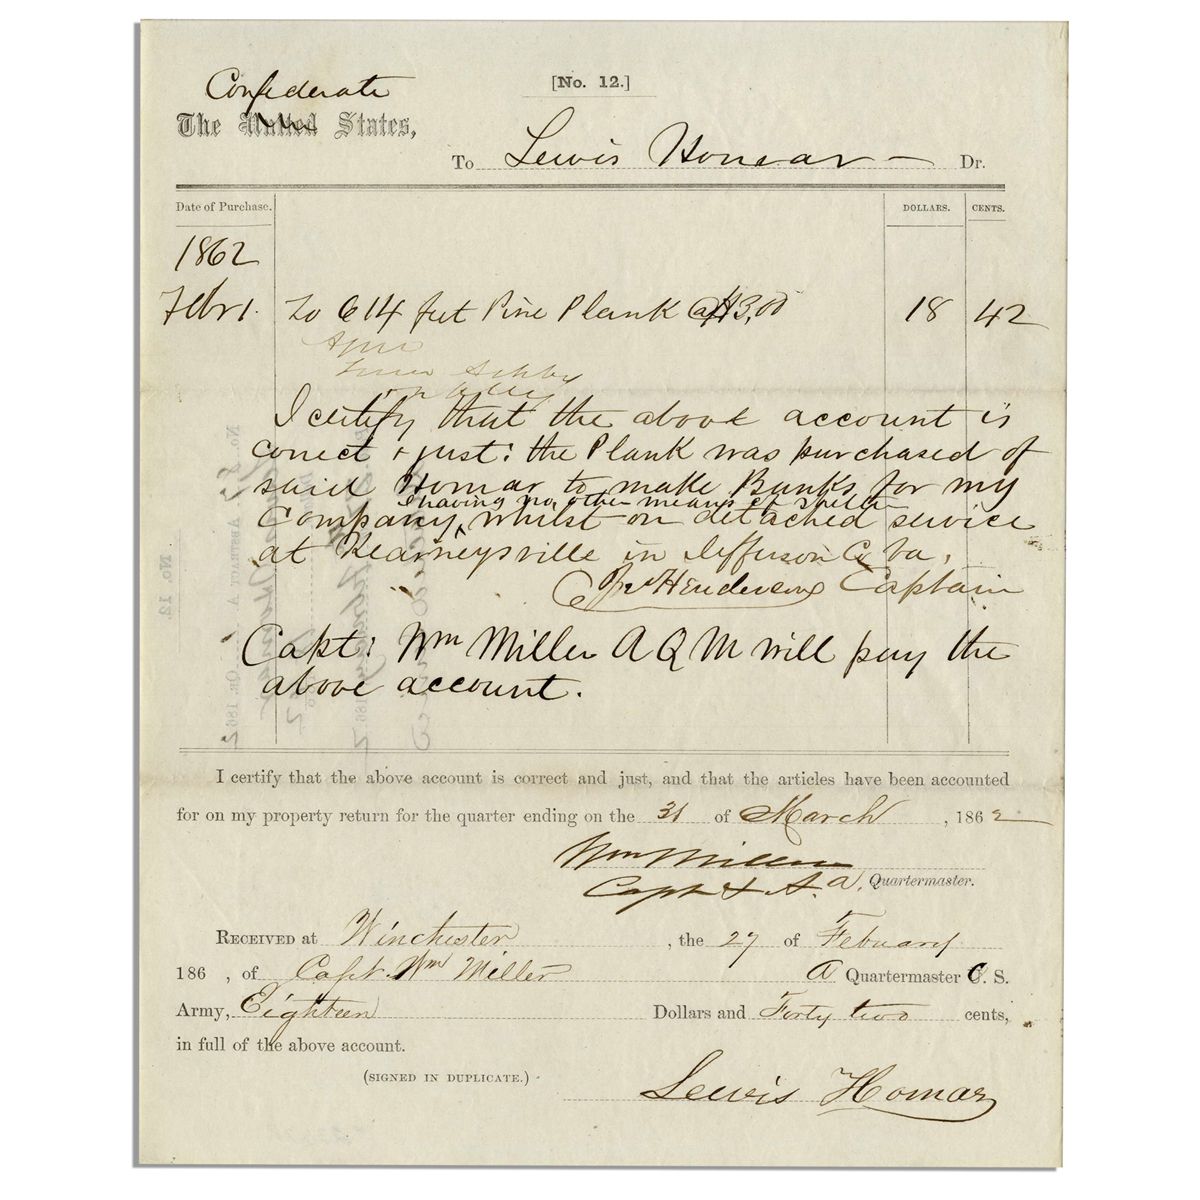 [No. 12.]
Confederate
The United States,
To Lewis Homar — Dr.
Date of Purchase. DOLLARS. CENTS.
1862
Febr 1. To 614 feet Pine Plank @ $3,00 18 42
Turner Ashby
I certify that the above account is
corect & just: the Plank was purchased of
said Homar to make Bunks for my
I having no other means of
Company, whilst on detached service
at Kearneysville in Jefferson Co Va,
Henderson Captain
Capt: Wm Miller A Q M will pay the
above account.
I certify that the above account is correct and just, and that the articles have been accounted
for on my property return for the quarter ending on the 31 of March, 1862
Wm Miller
Capt & A. Q. Quartermaster.
RECEIVED at Winchester, the 27 of Febuary
186 , of Capt. Wm Miller A Quartermaster C. S.
Army, Eighteen Dollars and Forty two cents,
in full of the above account.
(SIGNED IN DUPLICATE.)
Lewis Homar